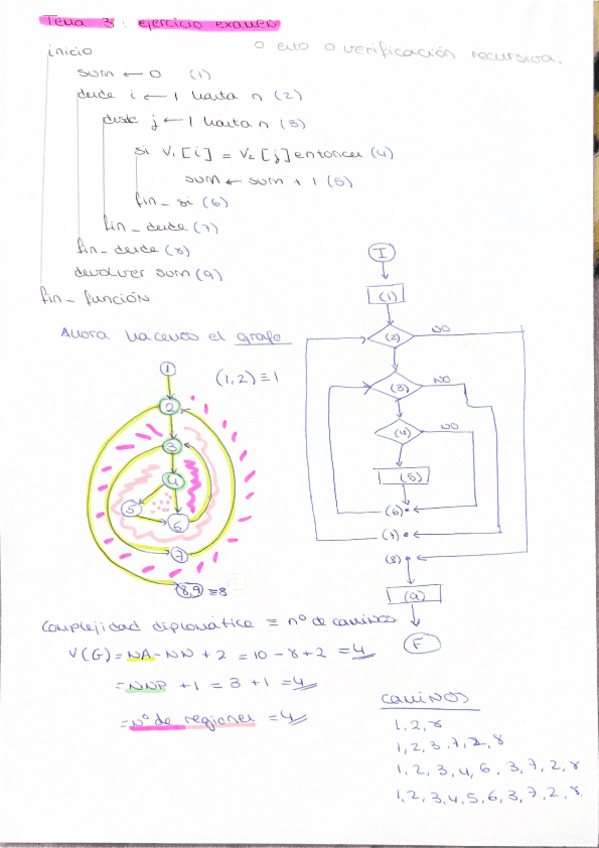 Tema 3: ejercicio examen
inicio
o esto o verificación recursiva.
sum ← 0 (1)
desde i ← 1 hasta n (2)
desde j ← 1 hasta n (3)
si V₁[i] = V₂[j] entonces (4)
sum ← sum + 1 (5)
fin_si (6)
fin_desde (7)
fin_desde (8)
devolver sum (9)
fin_función
Ahora hacemos el grafo
(1,2) ≡ 1
1
2
3
4
5
6
7
8,9 ≡ 8
I
(1)
(2)
NO
(3)
NO
(4)
NO
(5)
(6)
(7)
(8)
(9)
F
Complejidad diplomática ≡ nº de caminos
V(G) = NA - NN + 2 = 10 - 8 + 2 = 4
= NNP + 1 = 3 + 1 = 4
= Nº de regiones = 4
CAMINOS
1, 2, 8
1, 2, 3, 7, 2, 8
1, 2, 3, 4, 6, 3, 7, 2, 8
1, 2, 3, 4, 5, 6, 3, 7, 2, 8